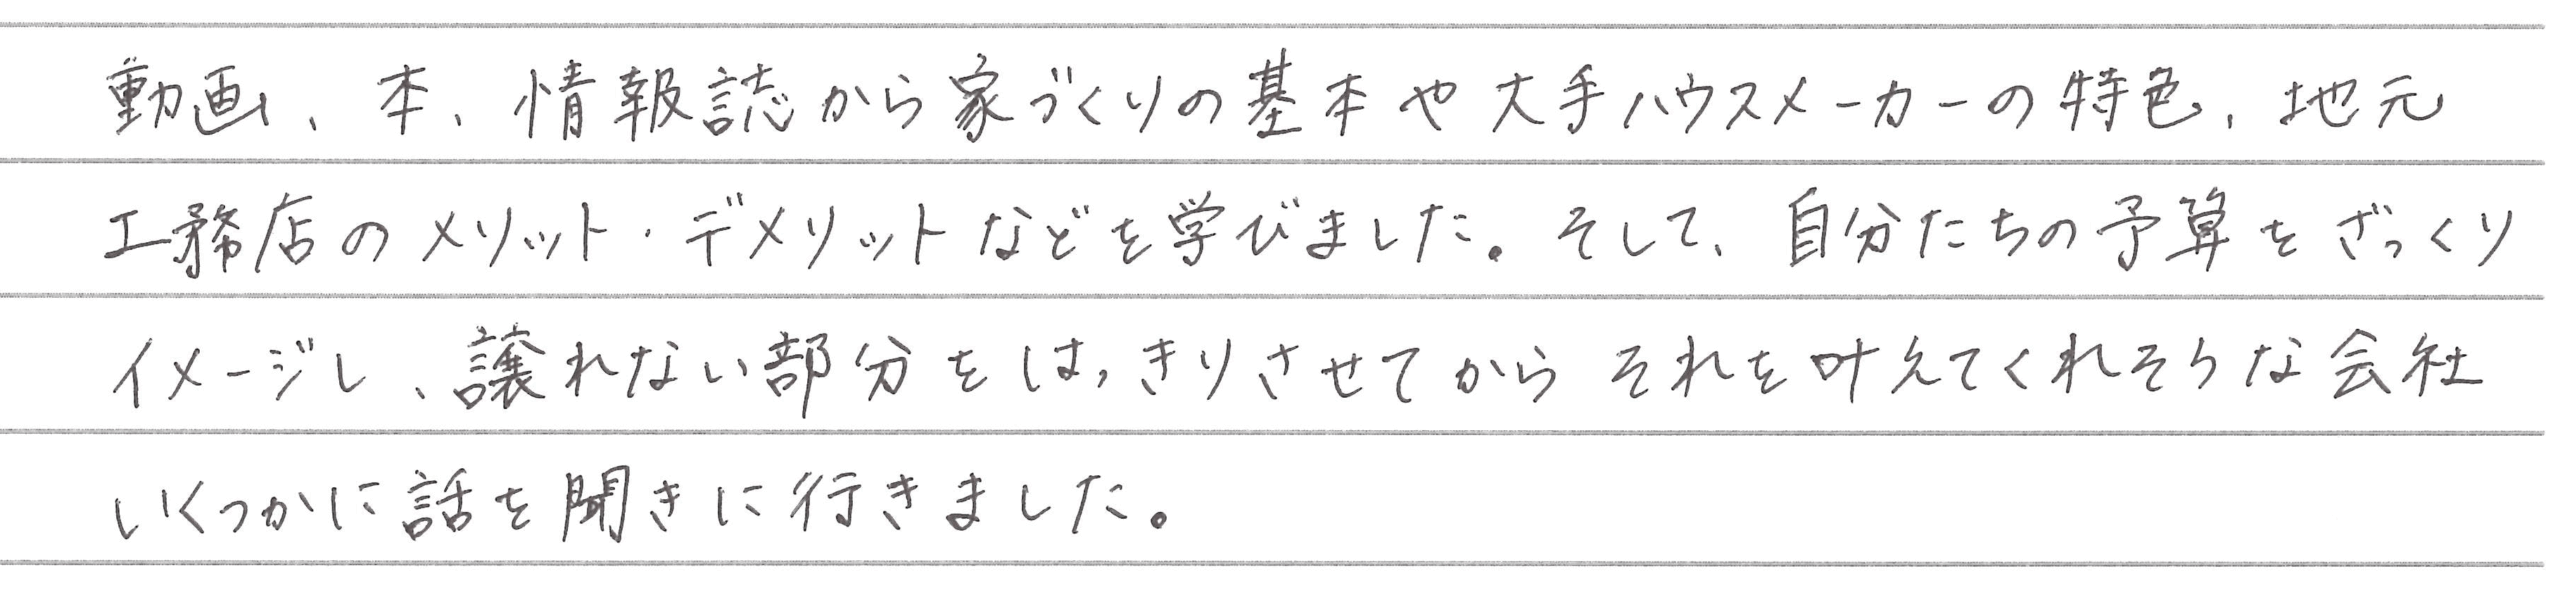 動画、本、情報誌から家づくりの基本や大手ハウスメーカーの特色、地元
工務店のメリット・デメリットなどを学びました。そして、自分たちの予算をざっくり
イメージし、譲れない部分をはっきりさせてからそれを叶えてくれそうな会社
いくつかに話を聞きに行きました。